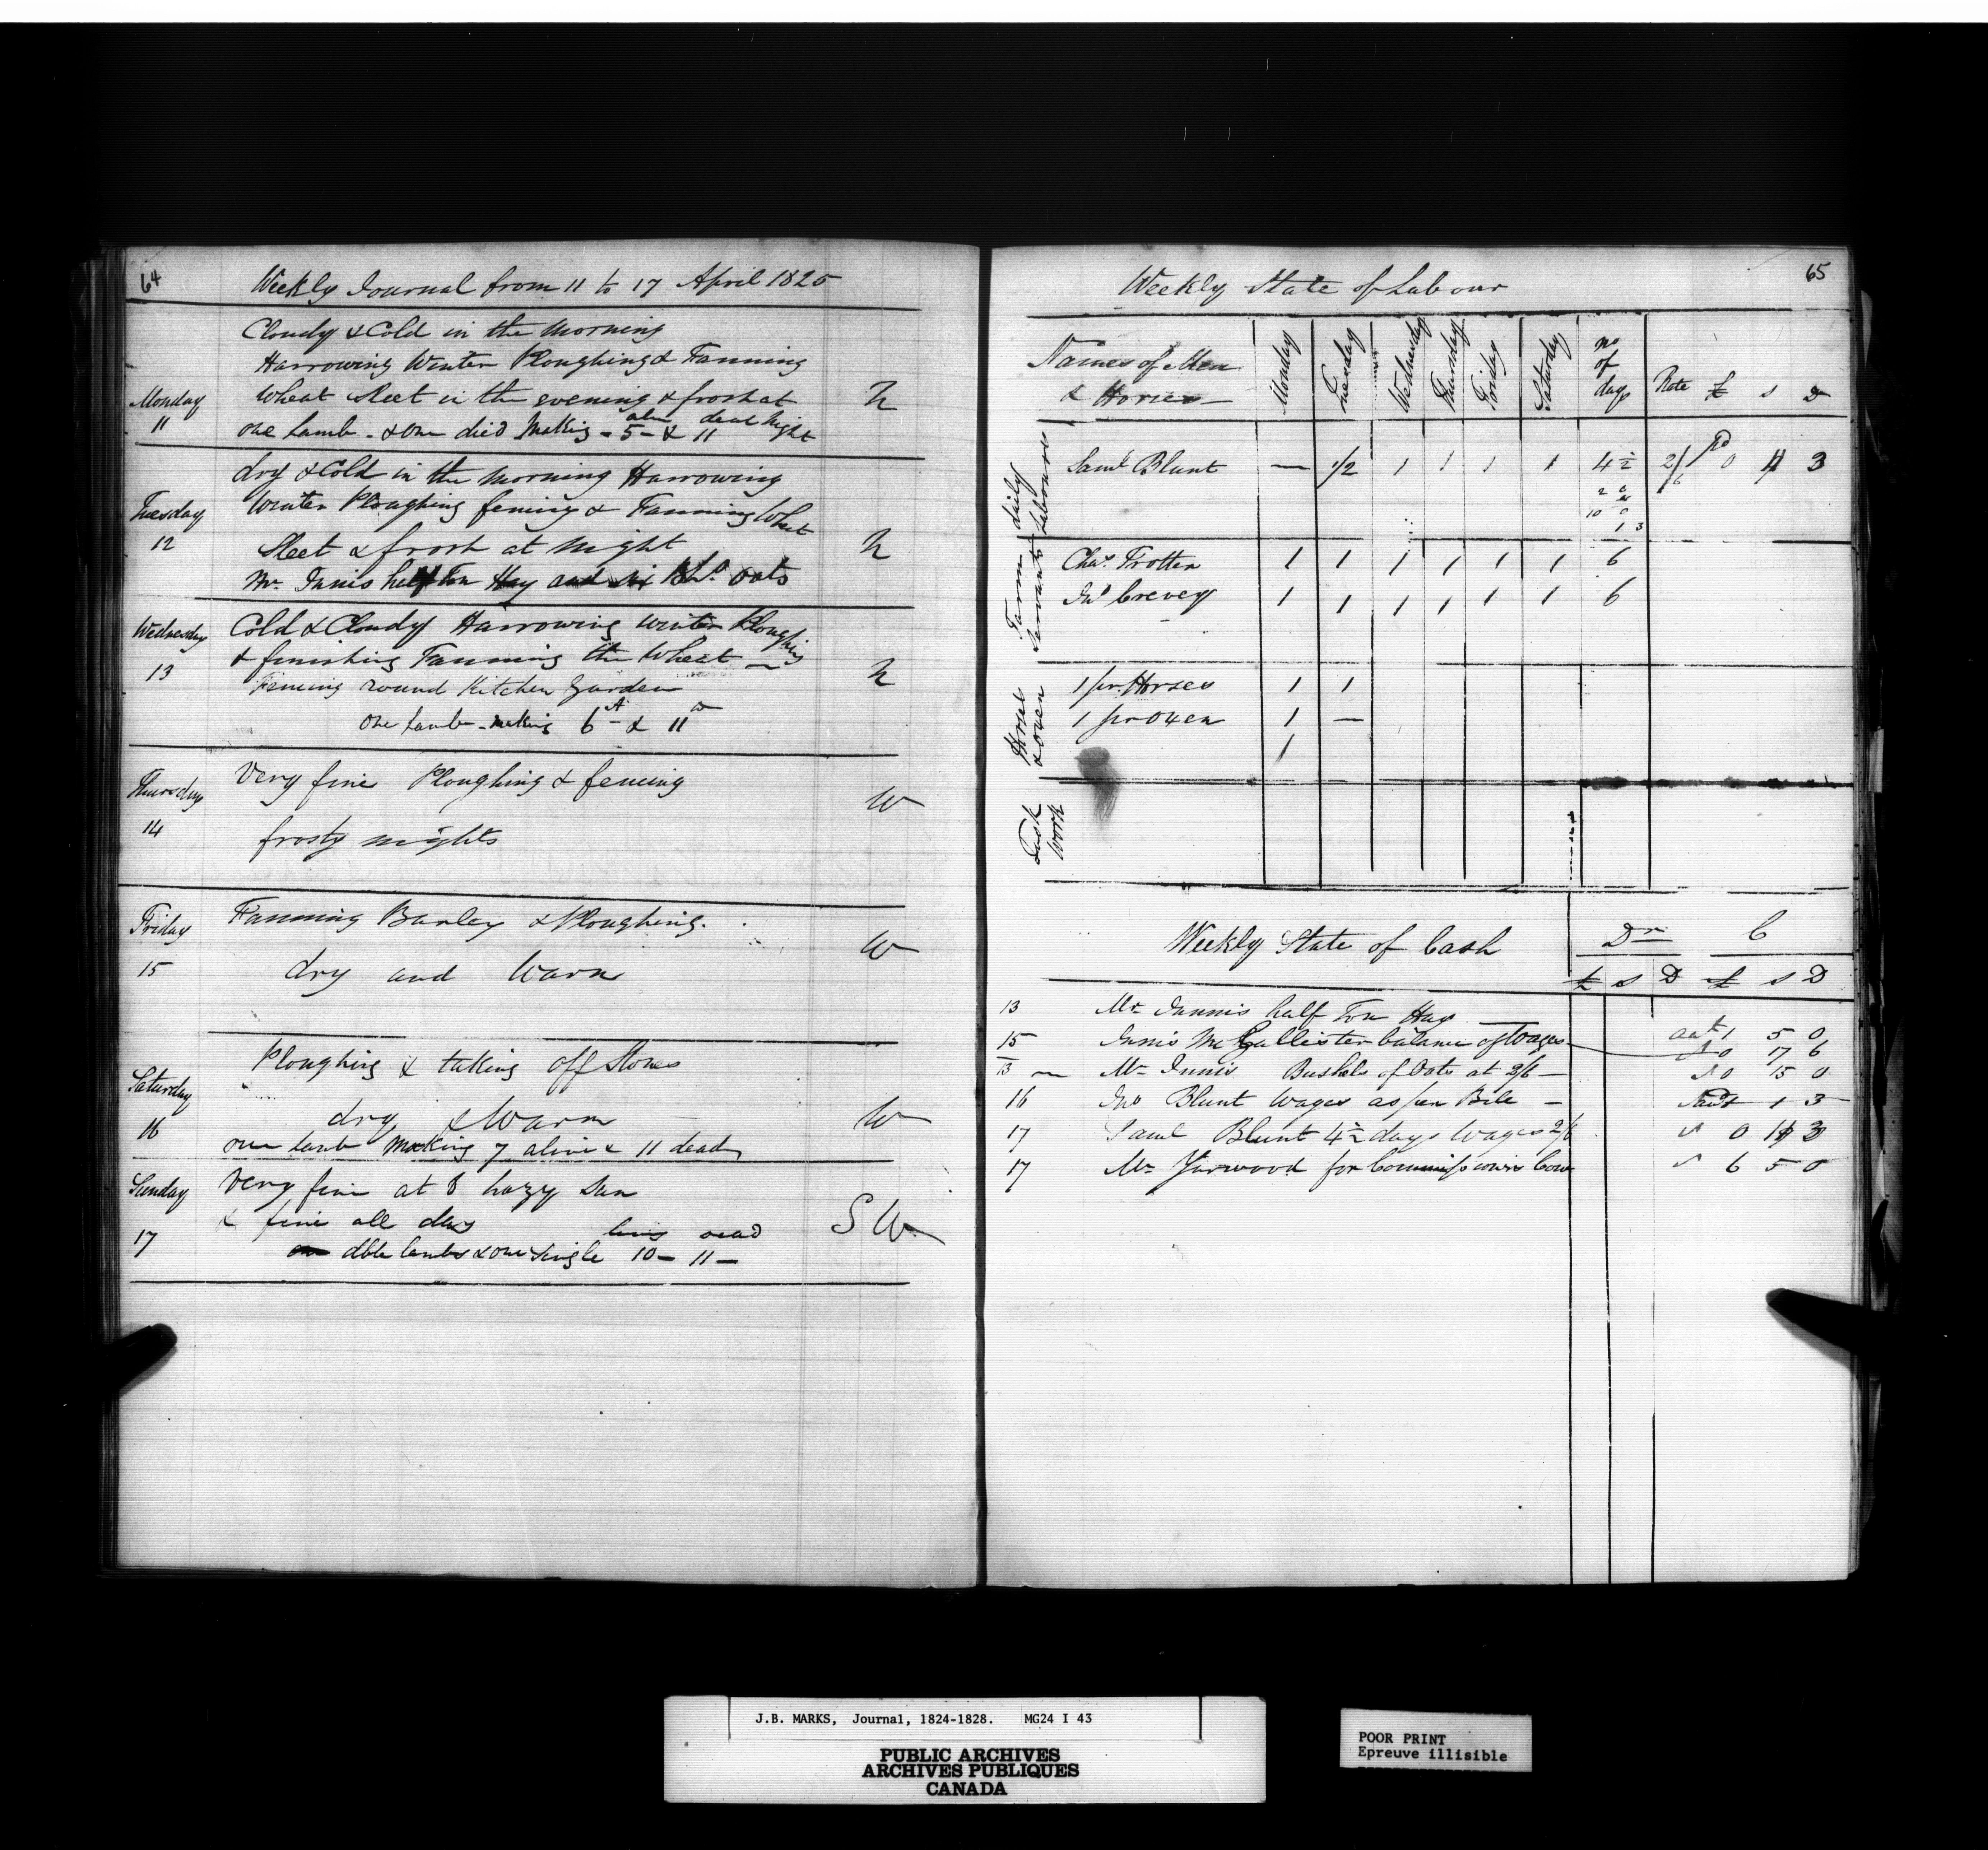 64
Weekly Journal from 11 to 17 April 1825
Cloudy & Cold in the Morning
Harrowing Winter Ploughing & Fanning
Monday
Wheat Sleet in the evening & frost at
N
11
one Lamb - & one died Making - 5 - & 11 night
alive dead
dry & Cold in the Morning Harrowing
Tuesday
Winter Ploughing fencing & Fanning Wheat
12
Sleet & frost at Night
N
Mr. Innis half Ton Hay and six Bhs. Oats
Wednesday
Cold & Cloudy Harrowing Winter Ploughing
& finishing Fanning the Wheat
13
Fencing round Kitchen Garden
N
One Lamb - making 6 A & 11 D
Thursday
Very fine Ploughing & fencing
W
14
frosty nights
Friday
Fanning Barley & Ploughing.
W
15
dry and Warm
Ploughing & taking off Stones
Saturday
dry & Warm
W
16
one lamb Making 7 alive & 11 dead
Sunday
Very fine at 8 hazy Sun
& fine all day
S W
living dead
17
dble lambs & one single 10 - 11 -
65
Weekly State of Labour
Names of Men
& Horses
Monday
Tuesday
Wednesday
Thursday
Friday
Saturday
no of days
Rate
£ s D
daily Labourers
Saml Blunt — 1/2 1 1 1 1 4 1/2 2/6 0 11 3
10 0
1 3
Farm Servants
Chas. Trotter 1 1 1 1 1 1 6
Jno Crevey 1 1 1 1 1 1 6
Horse & Oxen
1 pr. Horses 1 1
1 pr Oxen 1 —
1
Task Work
Weekly State of Cash
Dr C
£ s D £ s D
13 Mr Innnis half Ton Hay 1 5 0
15 Innis McCallister balance of Wages 0 17 6
13 Mr Innis Bushels of Oats at 2/6 — 0 15 0
16 Jno Blunt Wages as per Bile — 1 3
17 Saml Blunt 4 1/2 days Wages 2/6 0 11 3
17 Mr Yarwood for Commissioners Cow 6 5 0
J.B. MARKS, Journal, 1824-1828. MG24 I 43
PUBLIC ARCHIVES
ARCHIVES PUBLIQUES
CANADA
POOR PRINT
Epreuve illisible